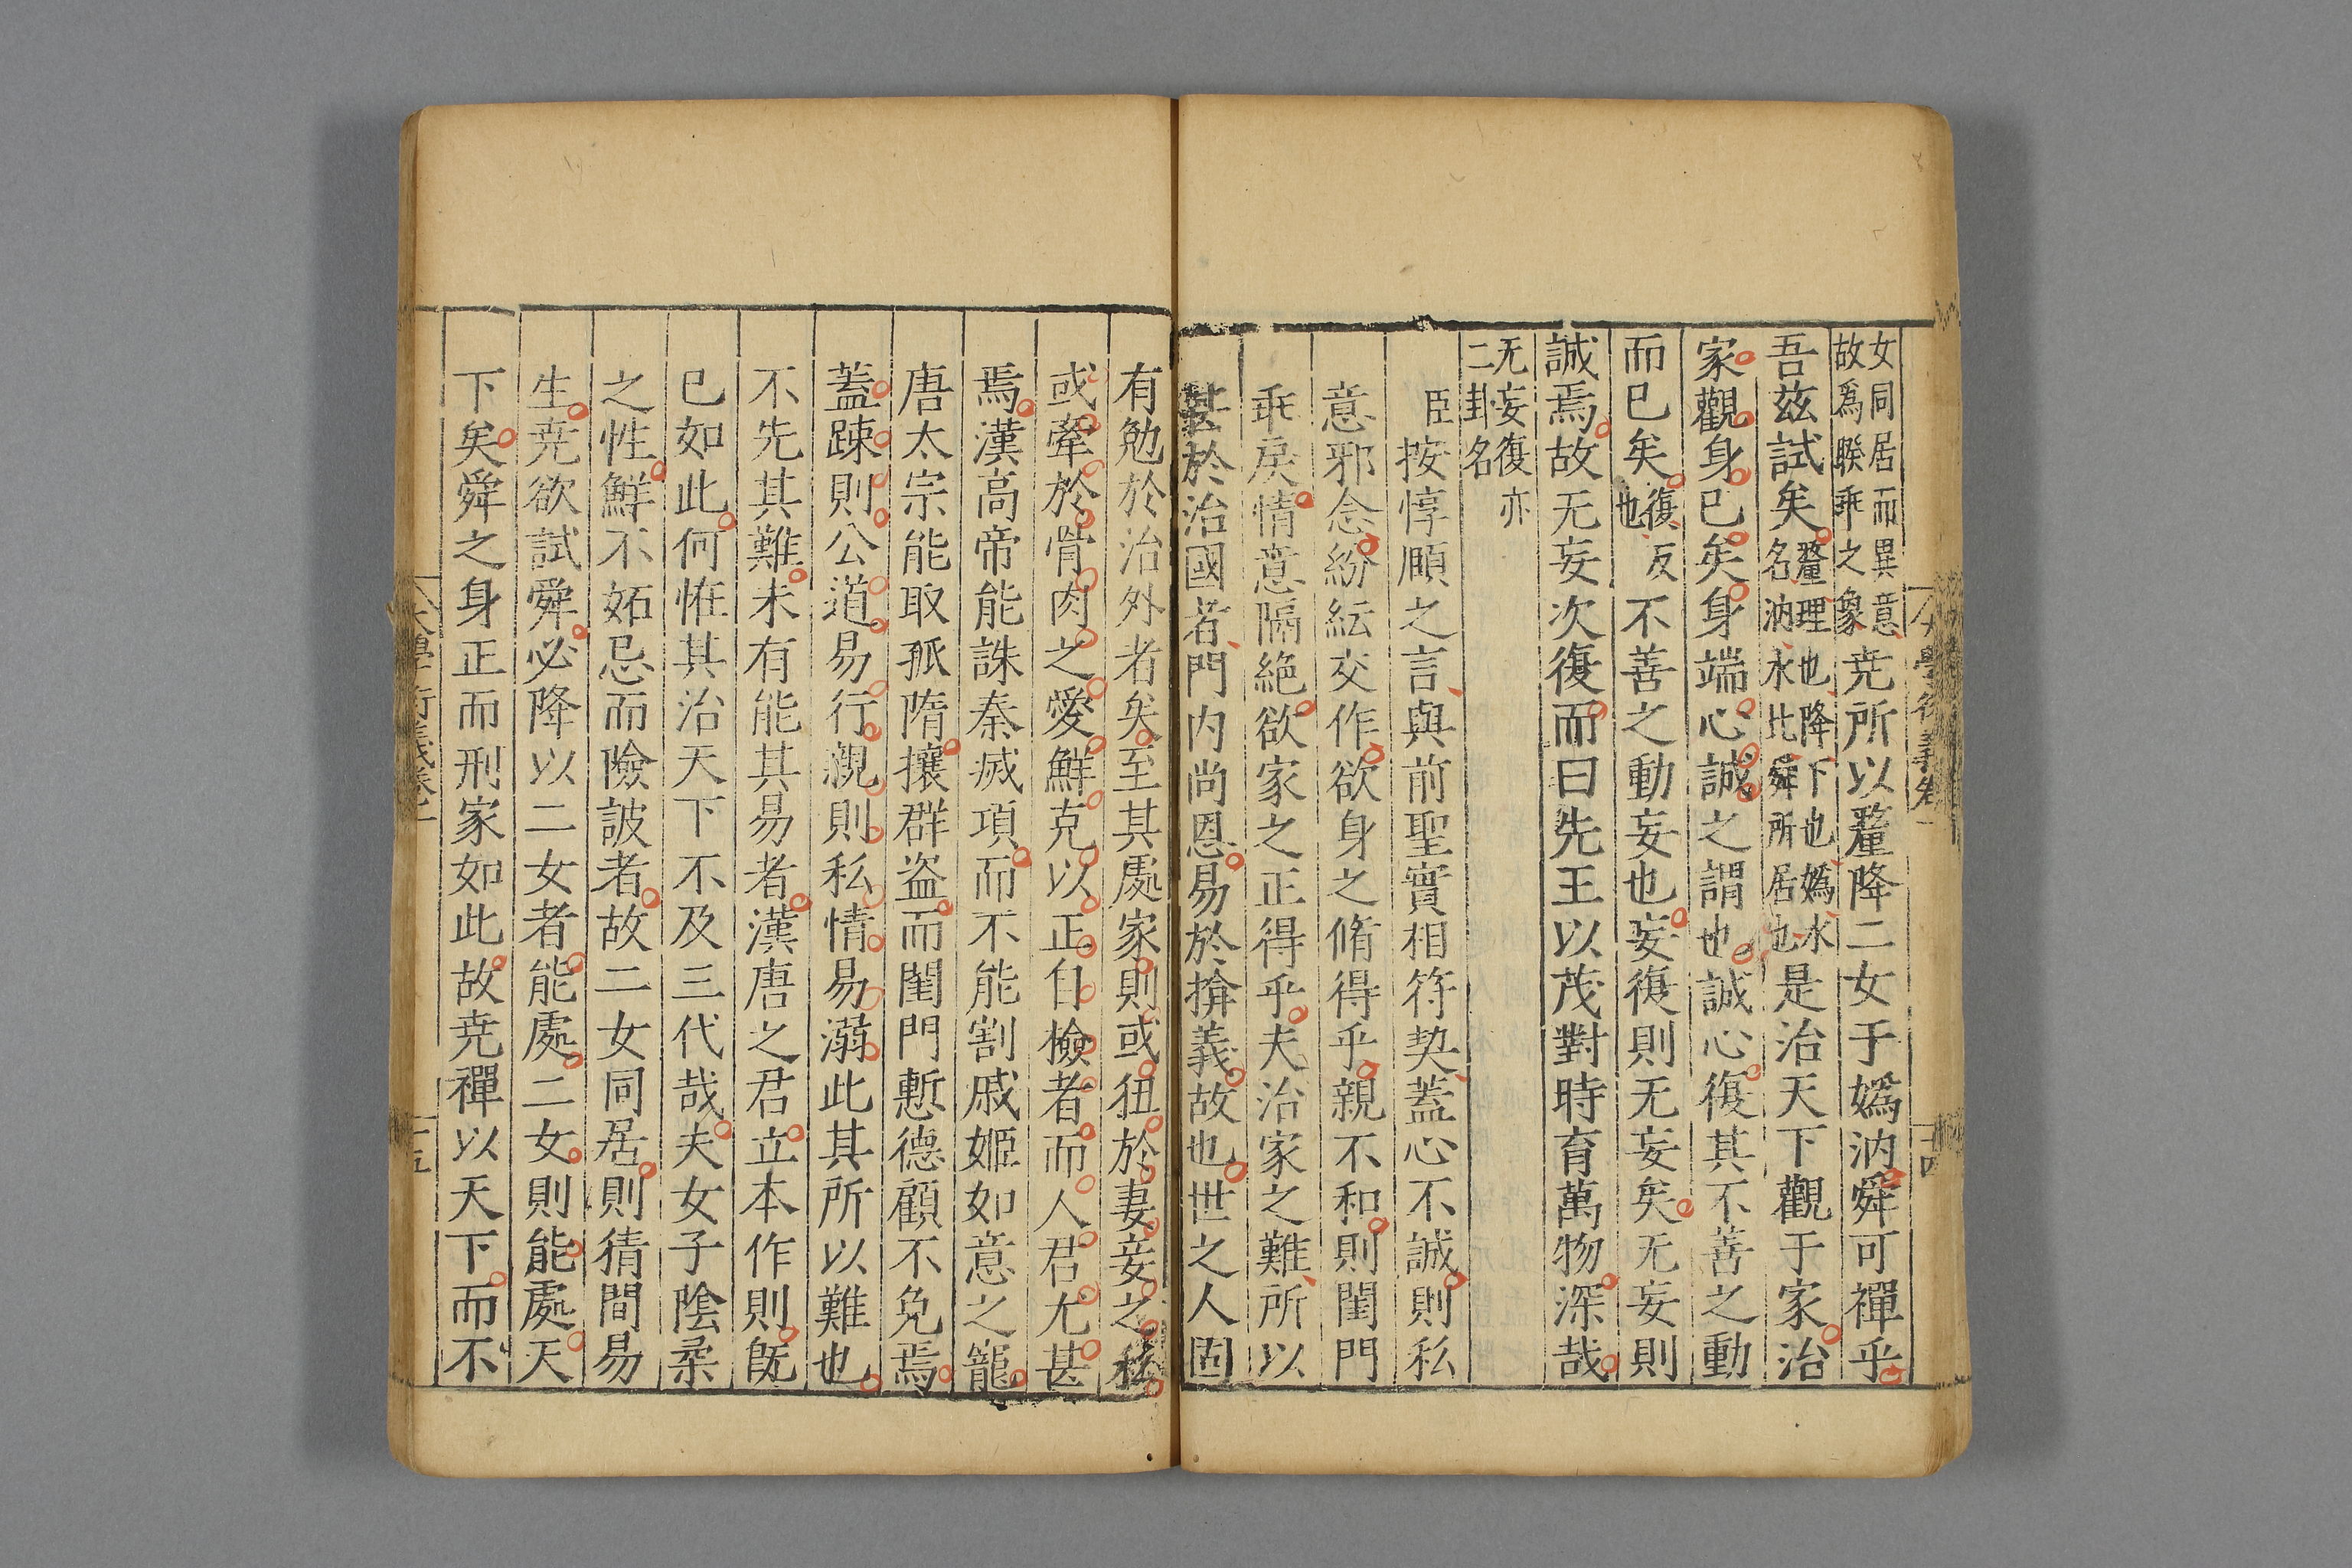 大學衍義卷一
十四
女同居而異意故爲睽乖之象堯所以釐降二女于嬀汭舜可禪乎
吾茲試矣釐理也降下也嬀水名汭水北舜所居也是治天下觀于家治
家觀身已矣身端心誠之謂也誠心復其不善之動
而已矣復反也不善之動妄也妄復則无妄矣无妄則
誠焉故无妄次復而曰先王以茂對時育萬物深哉
无妄復亦二卦名
臣按惇頤之言與前聖實相符契蓋心不誠則私
意邪念紛紜交作欲身之脩得乎親不和則閨門
乖戾情意隔絶欲家之正得乎夫治家之難所以
甚於治國者門内尚恩易於揜義故也世之人固
有勉於治外者矣至其處家則或狃於妻妾之私
或牽於骨肉之愛鮮克以正自檢者而人君尤甚
焉漢高帝能誅秦㓕項而不能割戚姬如意之寵
唐太宗能取孤隋攘群盜而閨門慙德顧不免焉
蓋踈則公道易行親則私情易溺此其所以難也
不先其難未有能其易者漢唐之君立本作則旣
已如此何恠其治天下不及三代哉夫女子陰柔
之性鮮不妬忌而險詖者故二女同居則猜間易
生堯欲試舜必降以二女者能處二女則能處天
下矣舜之身正而刑家如此故堯禪以天下而不
大學衍義卷一
十五